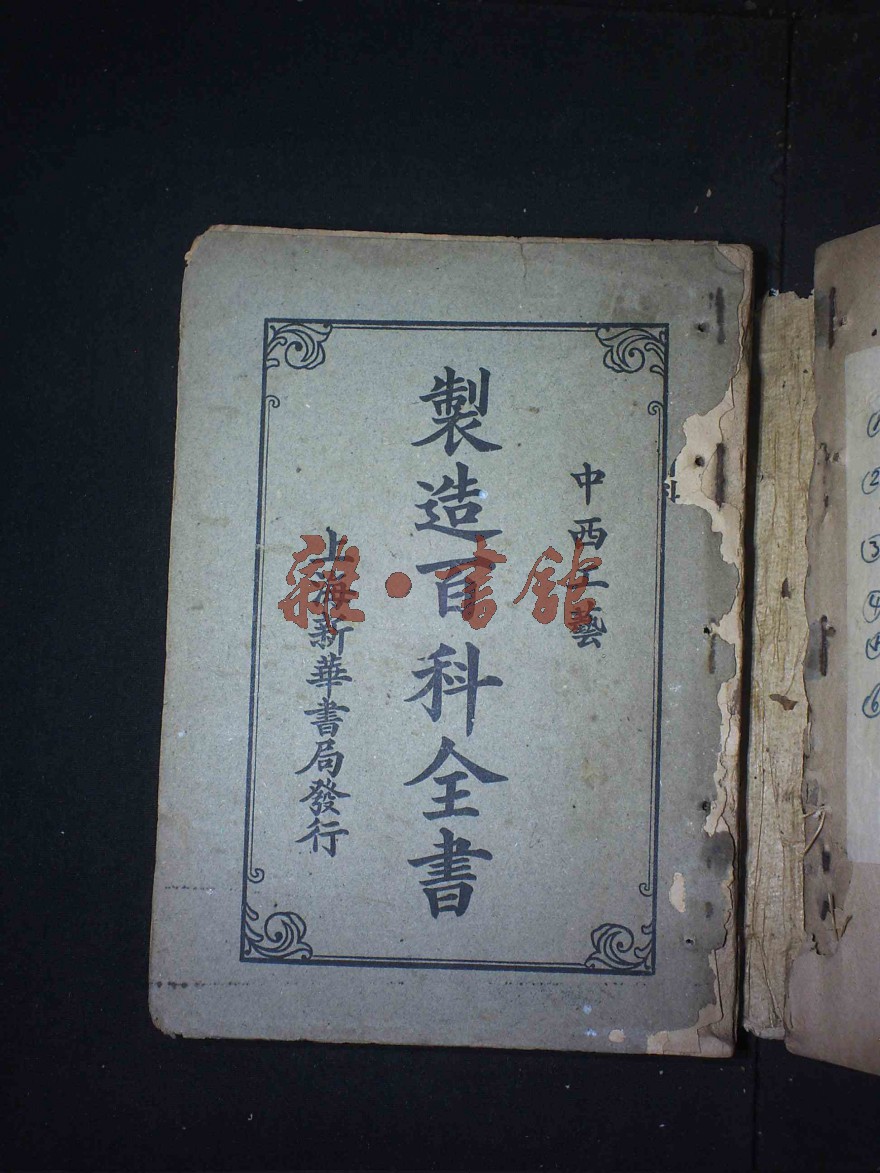 中西工藝
製造百科全書
上海新華書局發行
雜·書館
②
③
④
⑥